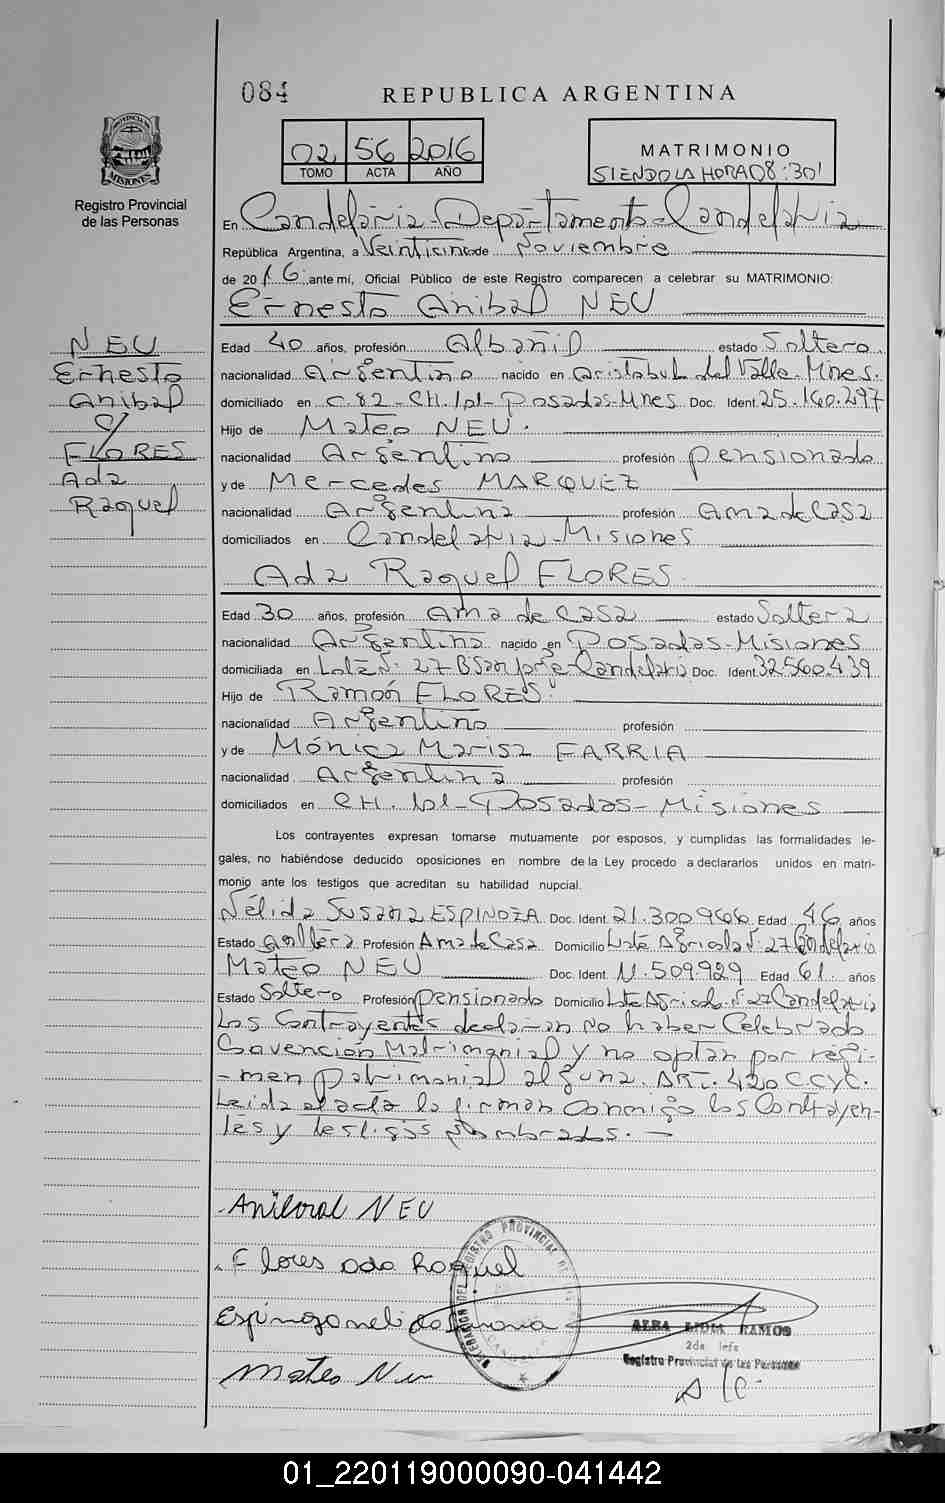 084
REPUBLICA ARGENTINA
02 56 2016
TOMO ACTA AÑO
MATRIMONIO
SIENDO LA HORA 08:30'
PROVINCIA DE MISIONES
Registro Provincial
de las Personas
En Candelaria - Departamento - Candelaria
República Argentina, a Veinticinco de Noviembre
de 2016, ante mí, Oficial Público de este Registro comparecen a celebrar su MATRIMONIO:
Ernesto Anibal NEU
NEU
Ernesto
Anibal
c/
FLORES
Ada
Raquel
Edad 40 años, profesión Albañil estado Soltero.
nacionalidad Argentino nacido en Aristobulo del Valle - Mnes.
domiciliado en C. 82 - CH. 101 - Posadas - Mnes Doc. Ident. 25.160.297
Hijo de Mateo NEU.
nacionalidad Argentino profesión pensionado
y de Mercedes MARQUEZ
nacionalidad Argentina profesión Ama de Casa
domiciliados en Candelaria - Misiones
Ada Raquel FLORES.
Edad 30 años, profesión Ama de Casa estado Soltera
nacionalidad Argentina nacido en Posadas - Misiones
domiciliada en Lote Nº 27 B San José - Candelaria Doc. Ident. 32.560.439
Hijo de Ramón FLORES
nacionalidad Argentino profesión
y de Mónica Marisa FARRIA
nacionalidad Argentina profesión
domiciliados en CH. 101 - Posadas - Misiones
Los contrayentes expresan tomarse mutuamente por esposos, y cumplidas las formalidades le-
gales, no habiéndose deducido oposiciones en nombre de la Ley procedo a declararlos unidos en matri-
monio ante los testigos que acreditan su habilidad nupcial.
Nélida Susana ESPINOZA Doc. Ident. 21.300.966 Edad 46 años
Estado Soltera Profesión Ama de Casa Domicilio Lote Agricola Nº 27 Candelaria
Mateo NEU Doc. Ident. M. 509.929 Edad 61 años
Estado Soltero Profesión pensionado Domicilio Lote Agricola Nº 27 Candelaria
Los Contrayentes declaran no haber Celebrado
Convención Matrimonial y no optan por regi-
-men patrimonial alguna. ART. 420 CCYC.
Leida el acta la firman Conmigo los Contrayen-
tes y testigos nombrados. -
Anibal NEU
Flores ada Raquel
Mateo Neu
ALBA LIDIA RAMOS
2da Jefe
Registro Provincial de las Personas
01_220119000090-041442